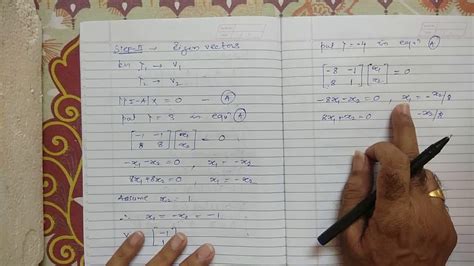 Step-III → Eigen vectors
for λ₁ → V₁
λ₂ → V₂
[λI-A]x = 0 — Ⓐ
put λ = 3 in eqⁿ Ⓐ
[-1 -1; 8 8] [x₁; x₂] = 0
-x₁-x₂ = 0 , x₁ = -x₂
8x₁+8x₂ = 0 , x₁ = -x₂
Assume x₂ = 1
∴ x₁ = -x₂ = -1
[-1; 1]
put λ = -4 in eqⁿ Ⓐ
[-8 -1; 8 1] [x₁; x₂] = 0
-8x₁-x₂ = 0 , x₁ = -x₂/8
8x₁+x₂ = 0 -x₂/8